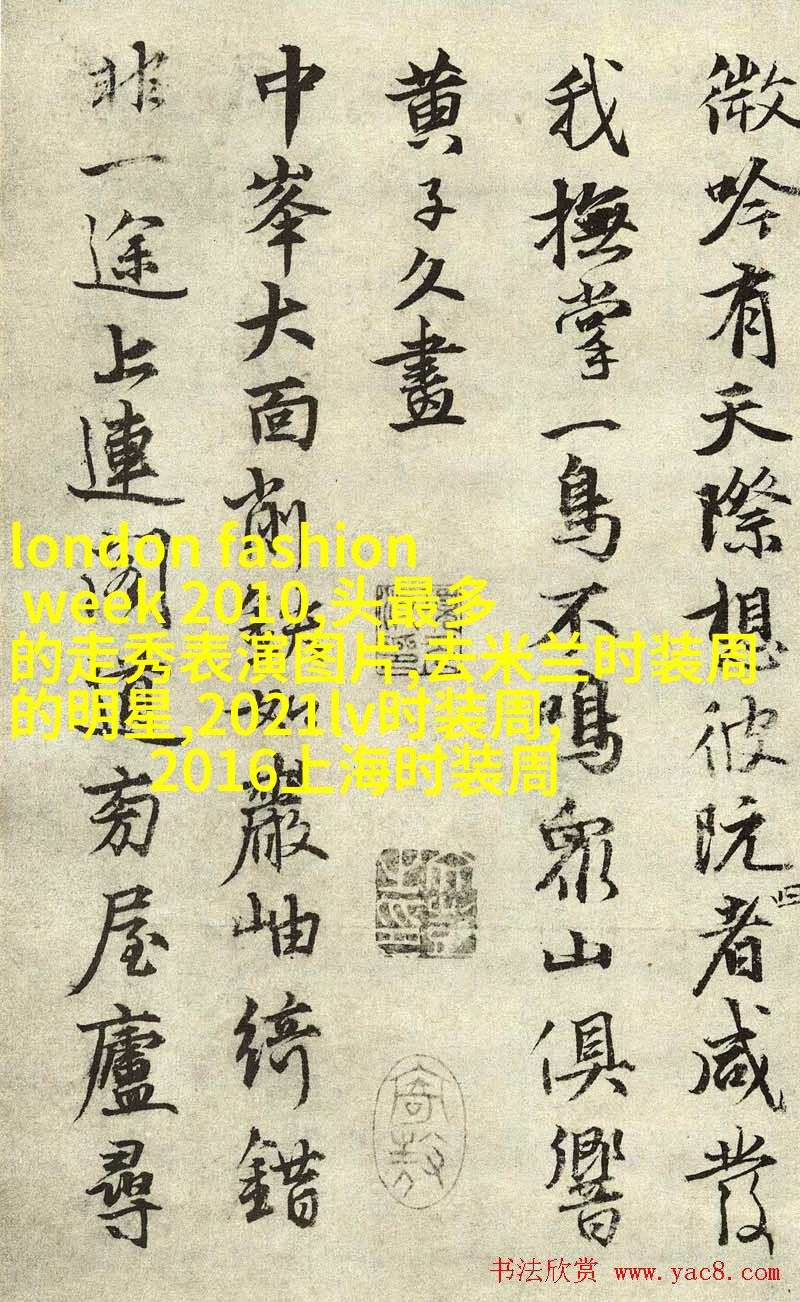 微吟有天際想彼阮者咸發
我撫掌一鳥不鳴眾山俱響
黄子久畫
中峯大面削巖岫綺錯
非一途上連閣道旁屋廬尋
london fashion
week 2010,头最多
的走秀表演图片,去米兰时装周
的明星,2021lv时装周,
2016上海时装周
书法欣赏 www.yac8.com